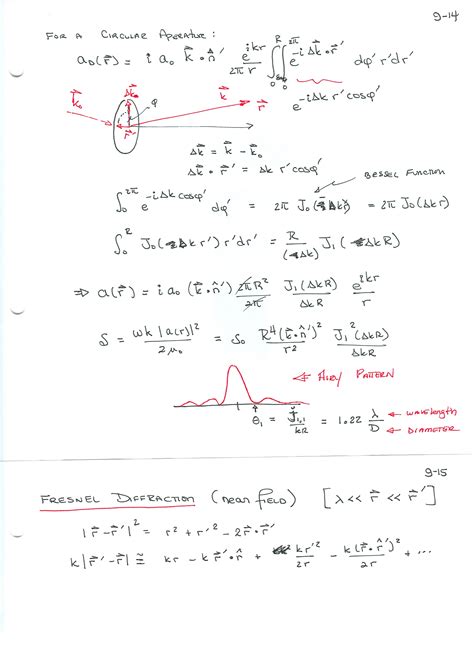 9-14
FOR A CIRCULAR APERATURE:
a_D(r⃗) = i a₀ k⃗·n̂' e^{ikr}/2πr ∫₀^R ∫₀^{2π} e^{-iΔk⃗·r⃗'} dφ' r'dr'
e^{-iΔk r'cosφ'}
k⃗₀ Δk⃗ φ r⃗' k⃗ r⃗
Δk⃗ = k⃗ - k⃗₀
Δk⃗·r⃗' = Δk r'cosφ'
BESSEL FUNCTION
∫₀^{2π} e^{-iΔk cosφ'} dφ' = 2π J₀(Δkr) = 2π J₀(Δkr)
∫₀^R J₀(Δk r') r'dr' = R/(Δk) J₁(ΔkR)
⇒ a(r⃗) = i a₀ (k⃗·n̂') 2πR²/2π J₁(ΔkR)/ΔkR e^{ikr}/r
S = ωk |a(r)|²/2μ₀ = S₀ R⁴(k⃗·n̂')²/r² J₁²(ΔkR)/ΔkR
⇐ AIRY PATTERN
θ₁ = J₁,₁/kR = 1.22 λ/D ← wavelength
← DIAMETER
9-15
FRESNEL DIFFRACTION (near field) [λ << r⃗ << r⃗']
|r⃗-r⃗'|² = r² + r'² - 2r⃗·r⃗'
k|r⃗'-r⃗| ≅ kr - k r⃗'·n̂ + kr'²/2r - k(r⃗·n̂')²/2r + ...